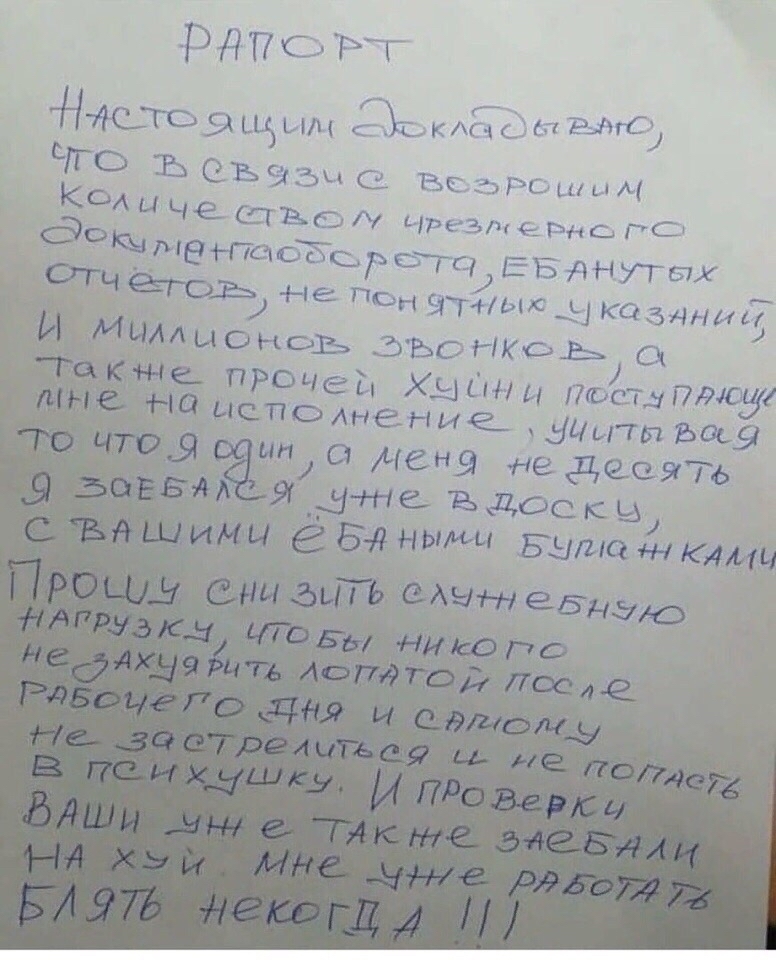 РАПОРТ
Настоящим докладываю,
что в связи с возрошим
количеством чрезмерного
документаоборота, ебанутых
отчётов, не понятных указаний,
и миллионов звонков, а
также прочей хуйни поступающе
мне на исполнение, учитывая
то что я один, а меня не десять
я заебался уже в доску,
с вашими ёбаными бумажками
Прошу снизить служебную
нагрузку, чтобы никого
не захуярить лопатой после
рабочего дня и самому
не застрелиться и не попасть
в психушку. И проверки
ваши уже также заебали
на хуй мне уже работать
блять некогда!!!